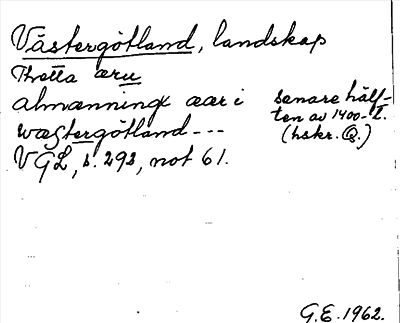 Västergötland, landskap
Thetta æru
almænningæ aar i
wæstergötland---
VGL, s. 293, not 61.
senare hälf-
ten av 1400-t.
(hskr. Q.)
G.E. 1962.